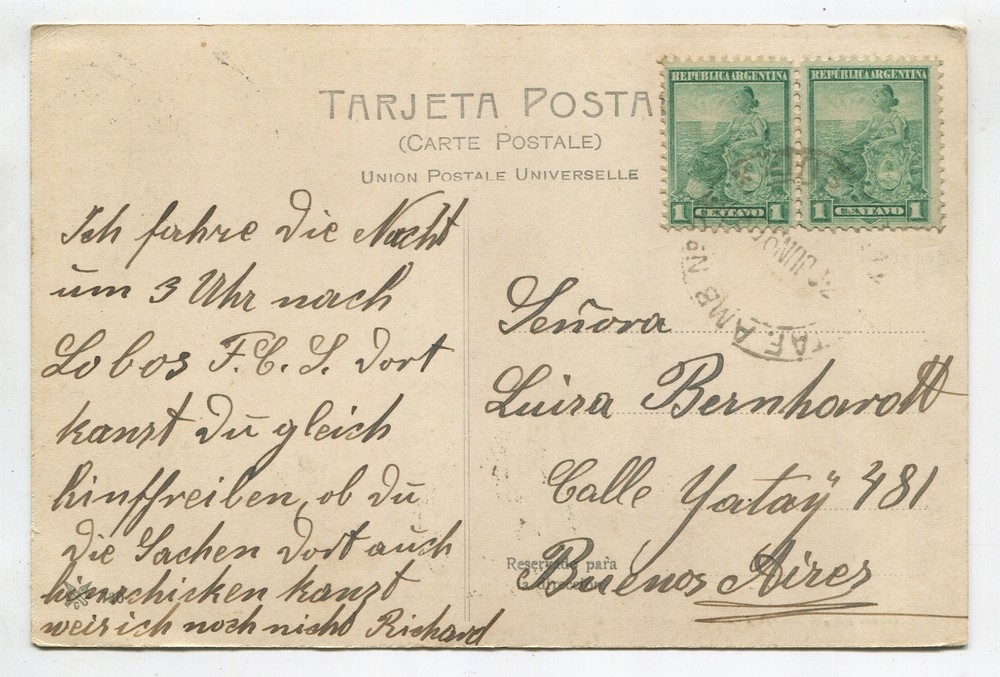 TARJETA POSTA
(CARTE POSTALE)
UNION POSTALE UNIVERSELLE
REPUBLICA ARGENTINA
1 CENTAVO 1
REPUBLICA ARGENTINA
1 CENTAVO 1
Ich fahre die Nacht
um 3 Uhr nach
Lobos F. C. S. dort
kanst du gleich
hinffreiben, ob du
die Sachen dort auch
hinschicken kanst
weis ich noch nicht Richard
Señora
Luisa Bernhardt
Calle Yataÿ 481
Buenos Aires
Reservado para
la dirección
ESTAF. AMB. Nº
JUNIO